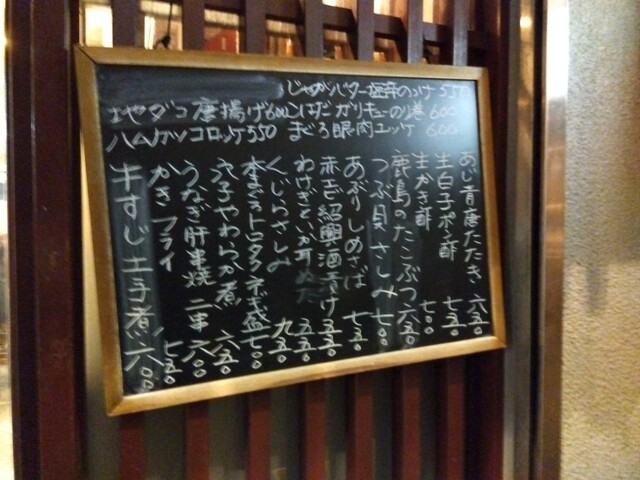 じゃがバター塩辛のっけ 550
地ダコ唐揚げ 600
こはだガリキューの巻 600
ハムカツコロッケ 550
まぐろ眼肉ユッケ 600
あじ青唐たたき 六五〇
生白子ポン酢 七五〇
生かき酢 七〇〇
鹿島のたこぶつ 六五〇
つぶ貝さしみ 七〇〇
あぶりしめさば 七五〇
赤エビ紹興酒漬け 五五〇
わけぎといか耳ぬた 五五〇
くじらさしみ 九五〇
本まぐろトロタクネギ盛 七〇〇
穴子やわらか煮 六五〇
うなぎ肝串焼 二串 六〇〇
かきフライ 七五〇
牛すじ土手煮 六〇〇